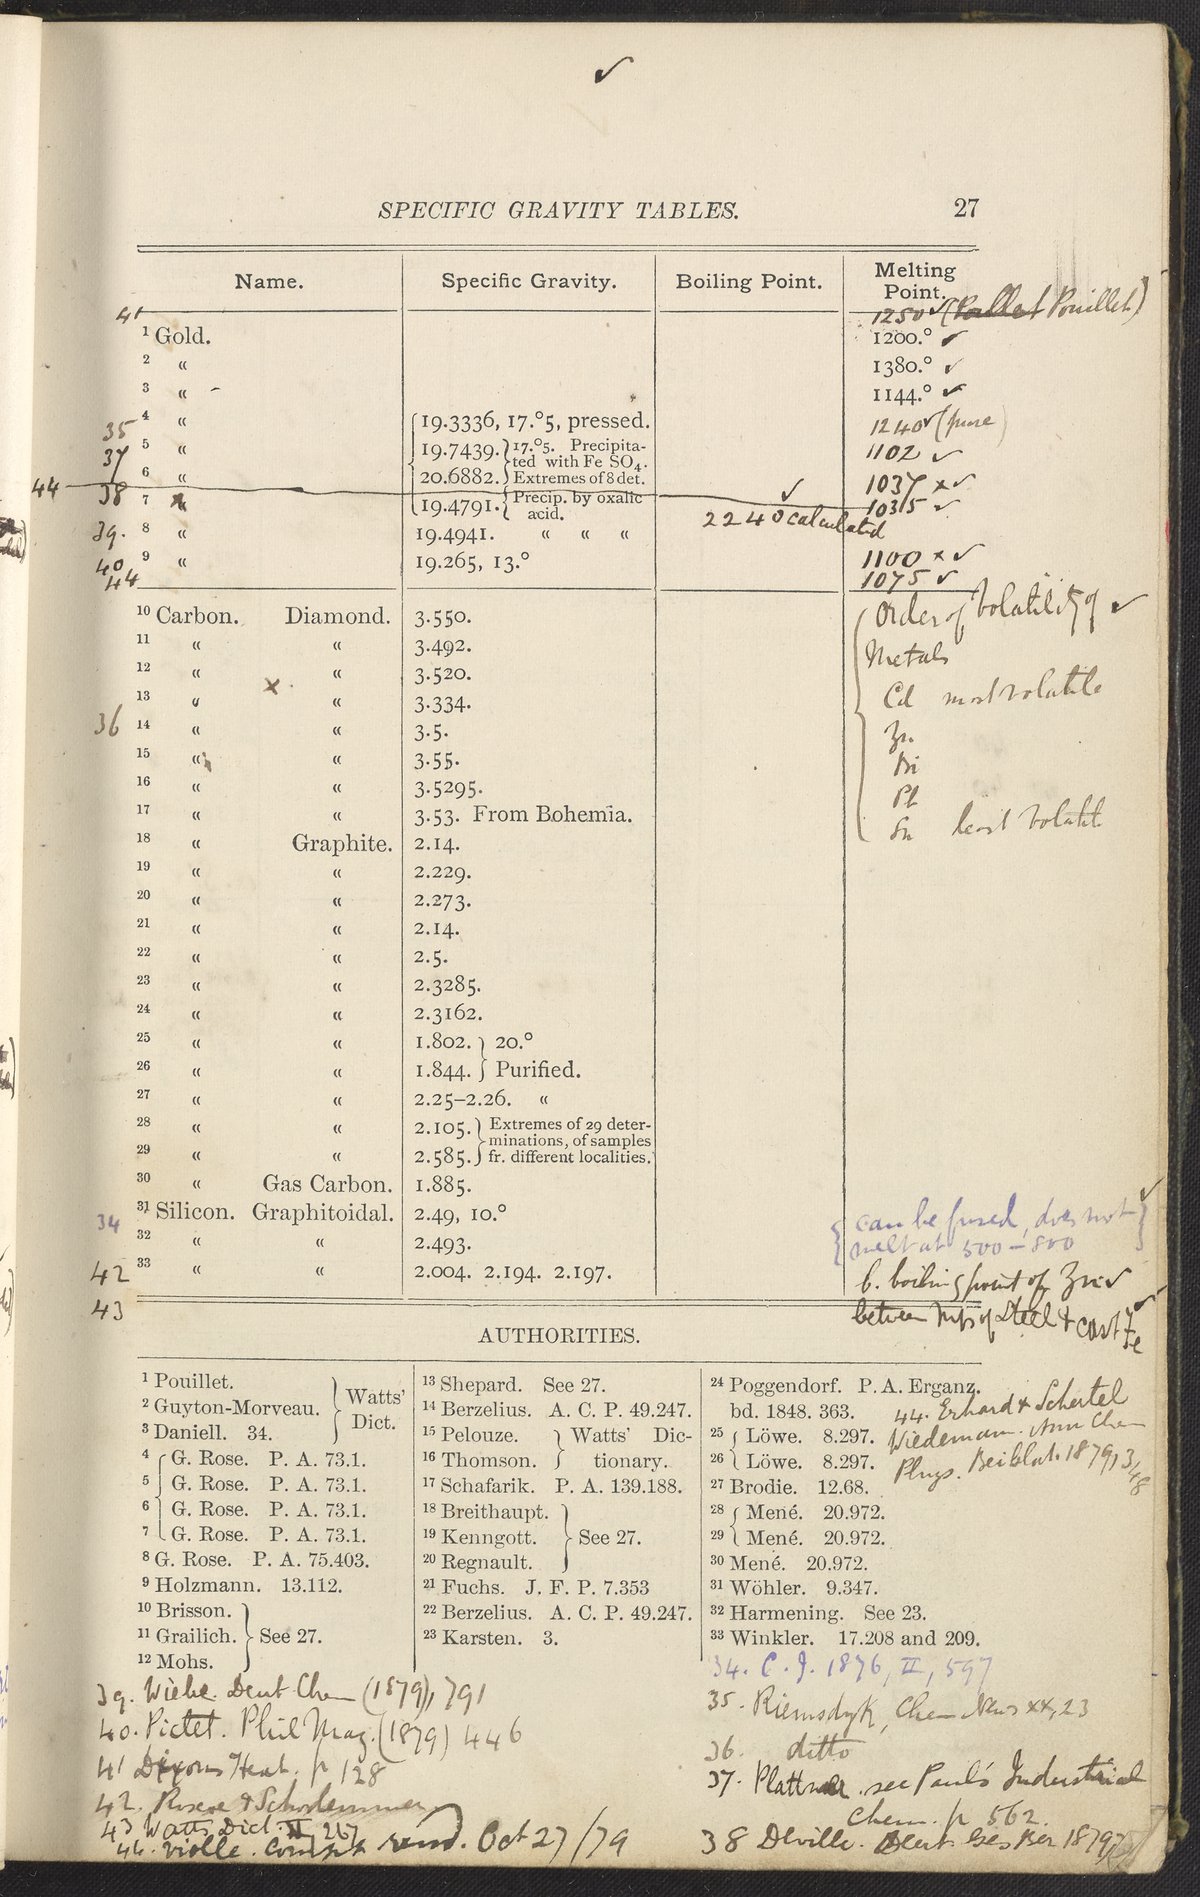 ✓
SPECIFIC GRAVITY TABLES. 27
Name. Specific Gravity. Boiling Point. Melting Point.
41 1250 ✓ (Pouillet)
1 Gold. 1200.° ✓
2 « 1380.° ✓
3 « 1144.° ✓
35 4 « 19.3336, 17.°5, pressed. 1240 ✓ (pure)
37 5 « 19.7439. } 17.°5. Precipitated with Fe SO4. 1102 ✓
38 6 « 20.6882. } Extremes of 8 det. 1037 x ✓
44 7 « 19.4791. { Precip. by oxalic acid. ✓ 1035 ✓
2240 calculated
39. 8 « 19.4941. « « «
40 9 « 19.265, 13.° 1100 x ✓
44 1075 ✓
10 Carbon. Diamond. 3.550. Order of Volatility of ✓
11 « « 3.492. Metals
12 « « 3.520.
13 « x « 3.334. Cd most volatile
36 14 « « 3.5. Zn
15 « « 3.55. Bi
16 « « 3.5295. Pb
17 « « 3.53. From Bohemia. Sn least volatile
18 « Graphite. 2.14.
19 « « 2.229.
20 « « 2.273.
21 « « 2.14.
22 « « 2.5.
23 « « 2.3285.
24 « « 2.3162.
25 « « 1.802. } 20.°
26 « « 1.844. } Purified.
27 « « 2.25–2.26. «
28 « « 2.105. } Extremes of 29 determinations, of samples
29 « « 2.585. } fr. different localities.
30 « Gas Carbon. 1.885.
34 31 Silicon. Graphitoidal. 2.49, 10.° { can be fused, does not }
32 « « 2.493. { melt at 500–800 }
42 33 « « 2.004. 2.194. 2.197. b. boiling point of Zn ✓
43 between mps of Steel & cast Fe ✓
AUTHORITIES.
1 Pouillet.
2 Guyton-Morveau. } Watts' Dict.
3 Daniell. 34.
4 G. Rose. P. A. 73.1.
5 G. Rose. P. A. 73.1.
6 G. Rose. P. A. 73.1.
7 G. Rose. P. A. 73.1.
8 G. Rose. P. A. 75.403.
9 Holzmann. 13.112.
10 Brisson.
11 Grailich. } See 27.
12 Mohs.
13 Shepard. See 27.
14 Berzelius. A. C. P. 49.247.
15 Pelouze. } Watts' Dic-
16 Thomson. } tionary.
17 Schafarik. P. A. 139.188.
18 Breithaupt.
19 Kenngott. } See 27.
20 Regnault.
21 Fuchs. J. F. P. 7.353
22 Berzelius. A. C. P. 49.247.
23 Karsten. 3.
24 Poggendorf. P. A. Erganz.
bd. 1848. 363.
25 Löwe. 8.297.
26 Löwe. 8.297.
27 Brodie. 12.68.
28 Mené. 20.972.
29 Mené. 20.972.
30 Mené. 20.972.
31 Wöhler. 9.347.
32 Harmening. See 23.
33 Winkler. 17.208 and 209.
44. Erhard & Schertel
Wiedeman. Ann Chem
Phys. Beiblat. 1879, 348
34. C. J. 1876, II, 597
35. Riemsdyk, Chem News xx, 23
36. ditto
37. Plattner. see Paul's Industrial
Chem. p 562.
38 Deville. Deut Ges Ber 1879
39. Wiebe. Deut Chem (1879), 791
40. Pictet. Phil Mag. (1879) 446
41 Dixons Heat. p 128
42. Roscoe & Schorlemmer
43 Watts Dict. II 267
44. Violle. Compt rend. Oct 27/79